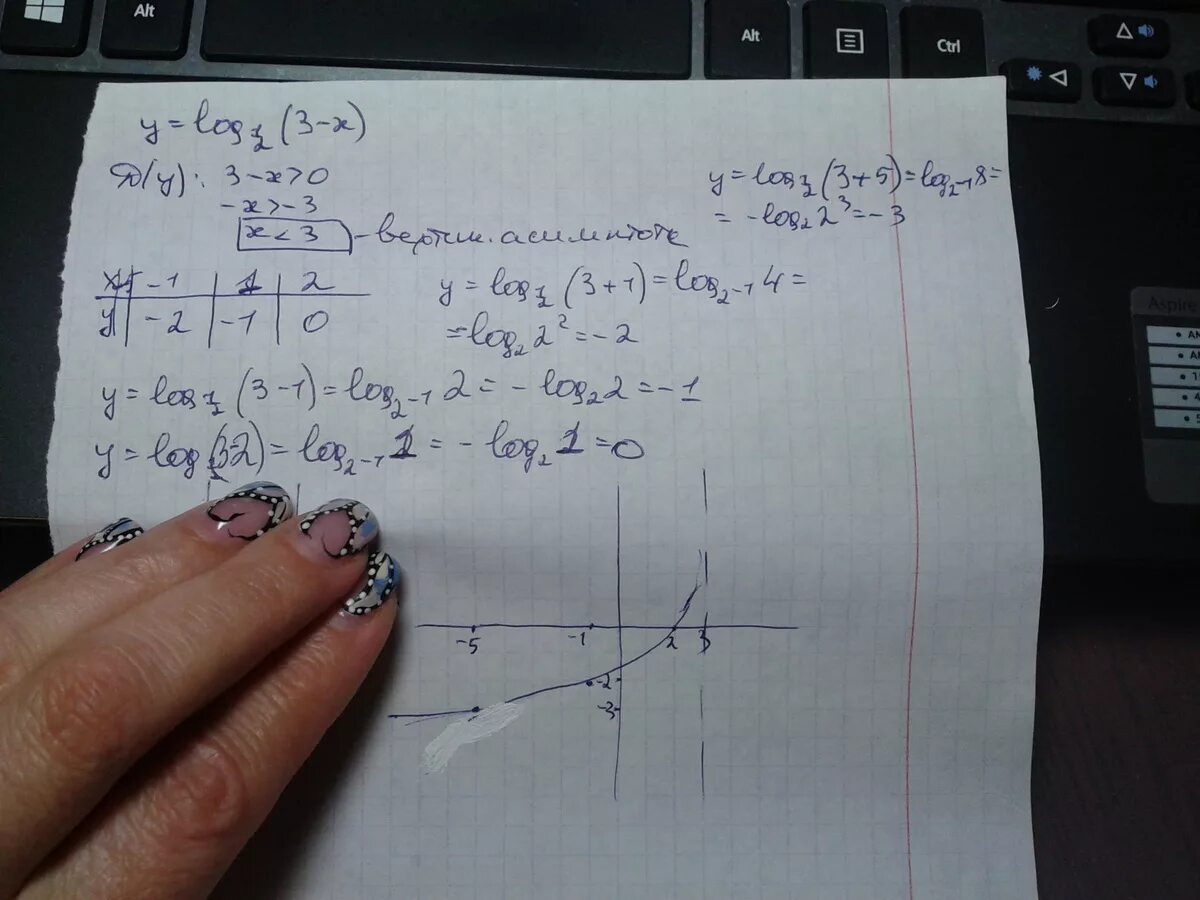 Alt
Alt
Ctrl
y = log½ (3-x)
D(y): 3-x>0
-x>-3
x<3 - вертик. асимптота
y = log½ (3+5) = log₂₋₁ 8 =
= -log₂ 2³ = -3
x | -1 | 1 | 2
y | -2 | -1 | 0
y = log½ (3+1) = log₂₋₁ 4 =
= -log₂ 2² = -2
y = log½ (3-1) = log₂₋₁ 2 = - log₂ 2 = -1
y = log½ (32) = log₂₋₁ 1 = - log₂ 1 = 0
-5 -1 2 3
-2
-3
Aspire